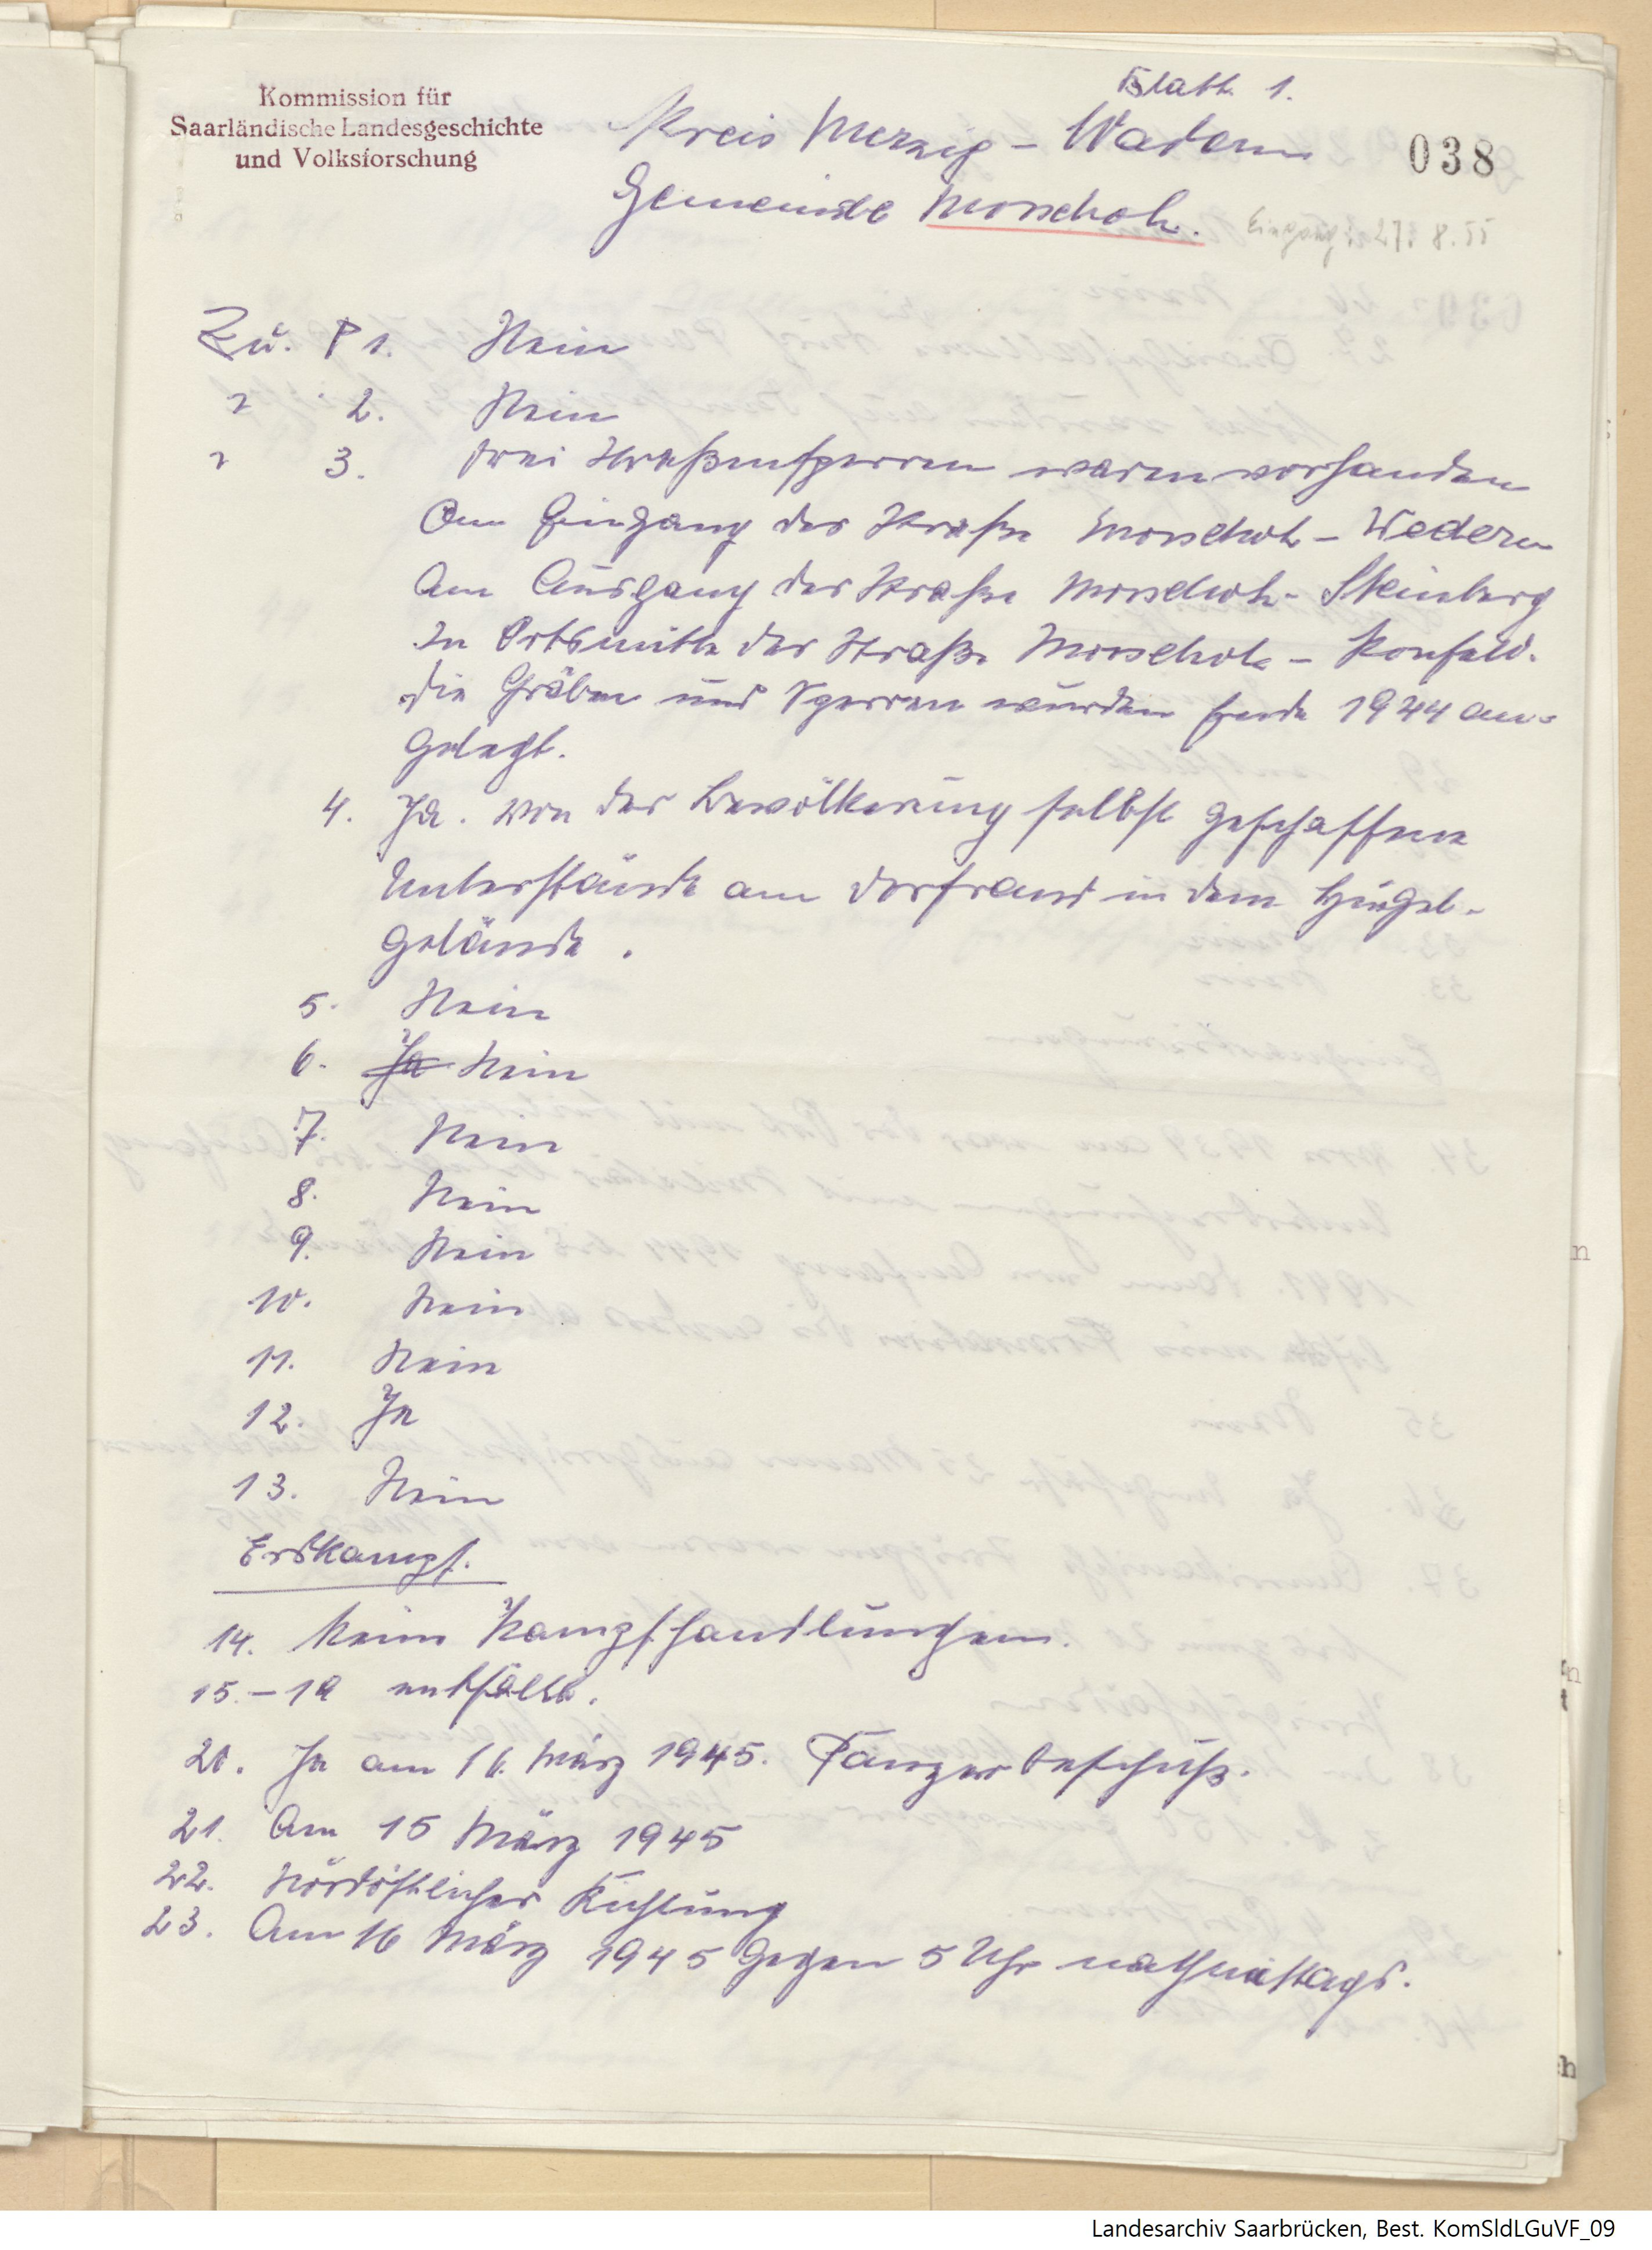 Blatt 1.
Kommission für
Saarländische Landesgeschichte
und Volksforschung
Kreis Merzig - Wadern
038
Gemeinde Morscholz.
Eingang: 27. 8. 55
Zu. P 1. Nein
" 2. Nein
" 3. drei Straßensperren waren vorhanden
Am Eingang der Straße Morscholz - Wadern
Am Ausgang der Straße Morscholz - Steinberg
In Ortsmitte der Straße Morscholz - Konfeld.
die Gräben und Sperren wurden Ende 1944 an-
gelegt.
4. Ja. von der Bevölkerung selbst geschaffene
Unterstände am Dorfrand in dem Hügel-
gelände.
5. Nein
6. Ja Nein
7. Nein
8. Nein
9. Nein
10. Nein
11. Nein
12. Ja
13. Nein
Erdkampf.
14. Keine Kampfhandlungen.
15. - 19 entfällt.
20. Ja am 16. März 1945. Panzerbeschuß.
21. Am 15 März 1945
22. Nordöstlicher Richtung
23. Am 16 März 1945 gegen 5 Uhr nachmittags.
Landesarchiv Saarbrücken, Best. KomSldLGuVF_09